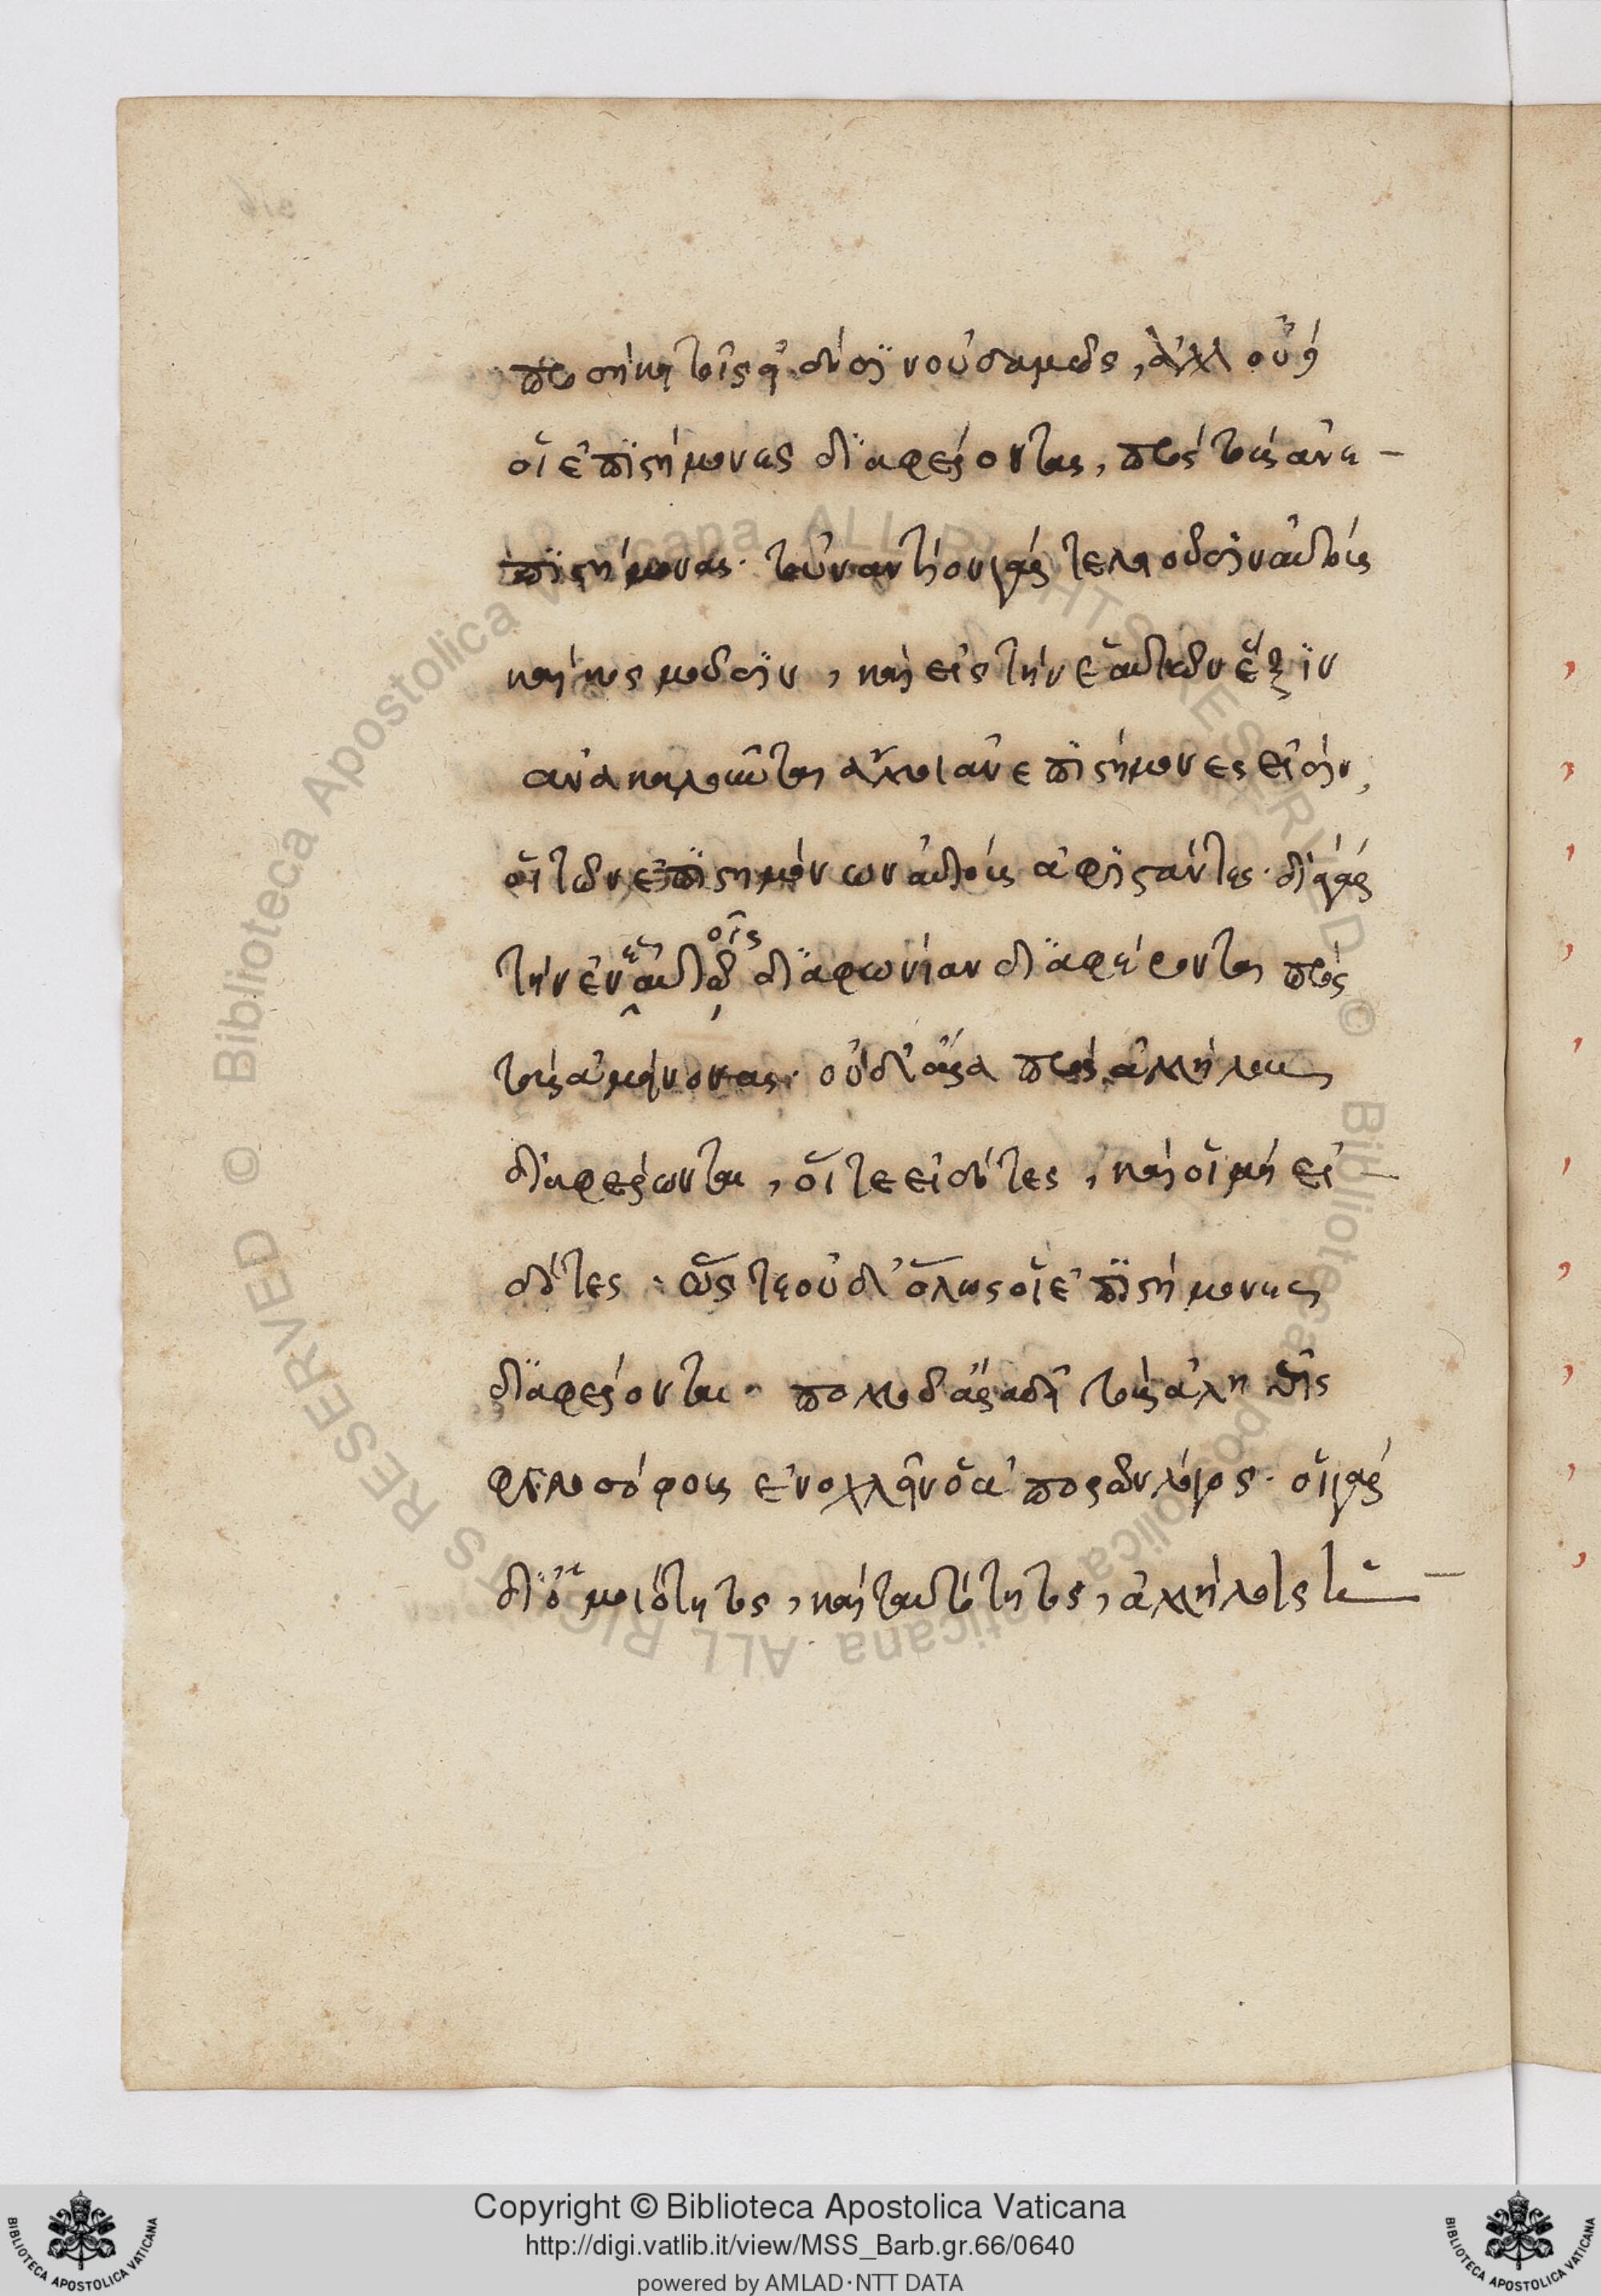 προσήκει τοῖς ἀνοήτοις οὐδαμῶς, ἀλλ' οὐχ
οἱ ἐπιστήμονες διαφέρονται, πρὸς τοὺς ἀνε-
πιστήμονας· τοὐναντίον γὰρ τελειοῦσιν αὐτοὺς
καὶ κοσμοῦσιν, καὶ εἰς τὴν ἑαυτῶν ἕξιν
ἀνακαλοῦνται ἀλλ' οἱ ἀνεπιστήμονες εἰσὶν,
οἱ τῶν ἐπιστημόνων αὐτοὺς ἀφιστάντες· διὰ γὰρ
τὴν ἐν ἑαυτοῖς διαφωνίαν διαφέρονται πρὸς
τοὺς ἀμείνονας· οὐδ' ἄρα πρὸς ἀλλήλους
διαφέρωνται, οἵ τε εἰδότες, καὶ οἱ μὴ εἰ-
δότες· ὥστε οὐδ' ὅλως οἱ ἐπιστήμονες
διαφέρονται· πολλοῦ ἄρα δεῖ τοὺς ἀληθεῖς
φιλοσόφους ἐνοχλεῖν ὁ ἀπορῶν λόγος· οἱ γὰρ
δι' ὁμοιότητος, καὶ ταυτότητος, ἀλλήλοις
Copyright © Biblioteca Apostolica Vaticana
http://digi.vatlib.it/view/MSS_Barb.gr.66/0640
powered by AMLAD·NTT DATA
BIBLIOTECA APOSTOLICA VATICANA
BIBLIOTECA APOSTOLICA VATICANA
© Biblioteca Apostolica Vaticana ALL RIGHTS RESERVED © Biblioteca Apostolica Vaticana ALL RIGHTS RESERVED